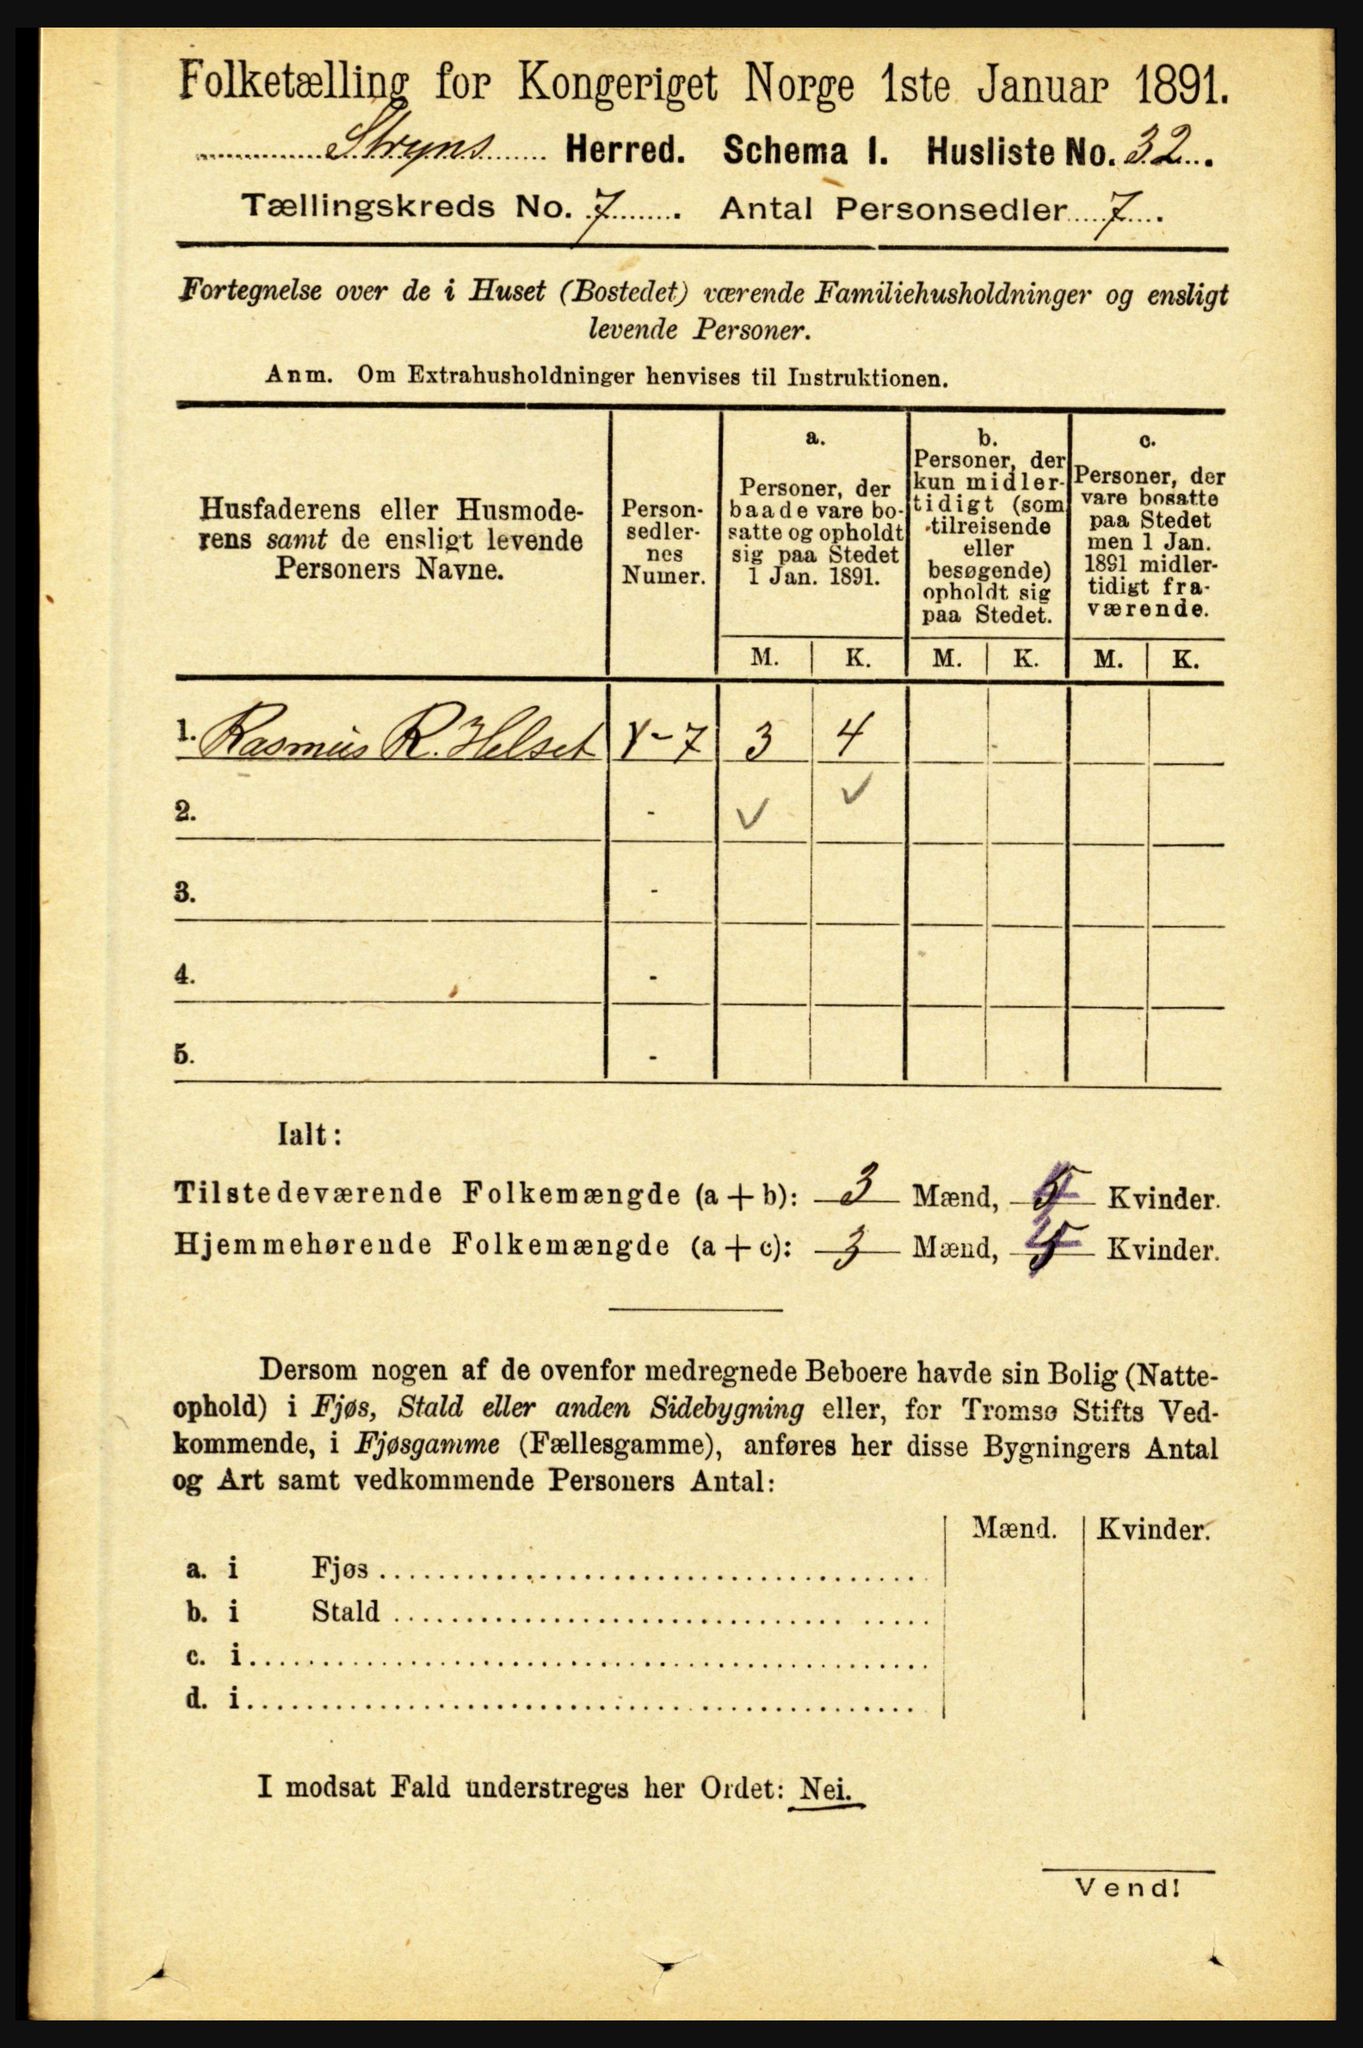 Folketælling for Kongeriget Norge 1ste Januar 1891.
Stryns Herred. Schema I. Husliste No. 32.
Tællingskreds No. 7. Antal Personsedler 7.
Fortegnelse over de i Huset (Bostedet) værende Familiehusholdninger og ensligt
levende Personer.
Anm. Om Extrahusholdninger henvises til Instruktionen.
Husfaderens eller Husmode-
rens samt de ensligt levende
Personers Navne.
Person-
sedler-
nes
Numer.
a.
Personer, der
baade vare bo-
satte og opholdt
sig paa Stedet
1 Jan. 1891.
b.
Personer, der
kun midler-
tidigt (som
tilreisende
eller
besøgende)
opholdt sig
paa Stedet.
c.
Personer, der
vare bosatte
paa Stedet
men 1 Jan.
1891 midler-
tidigt fra-
værende.
M. K. M. K. M. K.
1. Rasmus R. Helset - 7 3 4
2. - ✓ ✓
3. -
4. -
5. -
Ialt:
Tilstedeværende Folkemængde (a + b): 3 Mænd, Kvinder.
Hjemmehørende Folkemængde (a + c): 3 Mænd, Kvinder.
Dersom nogen af de ovenfor medregnede Beboere havde sin Bolig (Natte-
ophold) i Fjøs, Stald eller anden Sidebygning eller, for Tromsø Stifts Ved-
kommende, i Fjøsgamme (Fællesgamme), anføres her disse Bygningers Antal
og Art samt vedkommende Personers Antal:
Mænd. Kvinder.
a. i Fjøs
b. i Stald
c. i
d. i
I modsat Fald understreges her Ordet: Nei.
Vend!